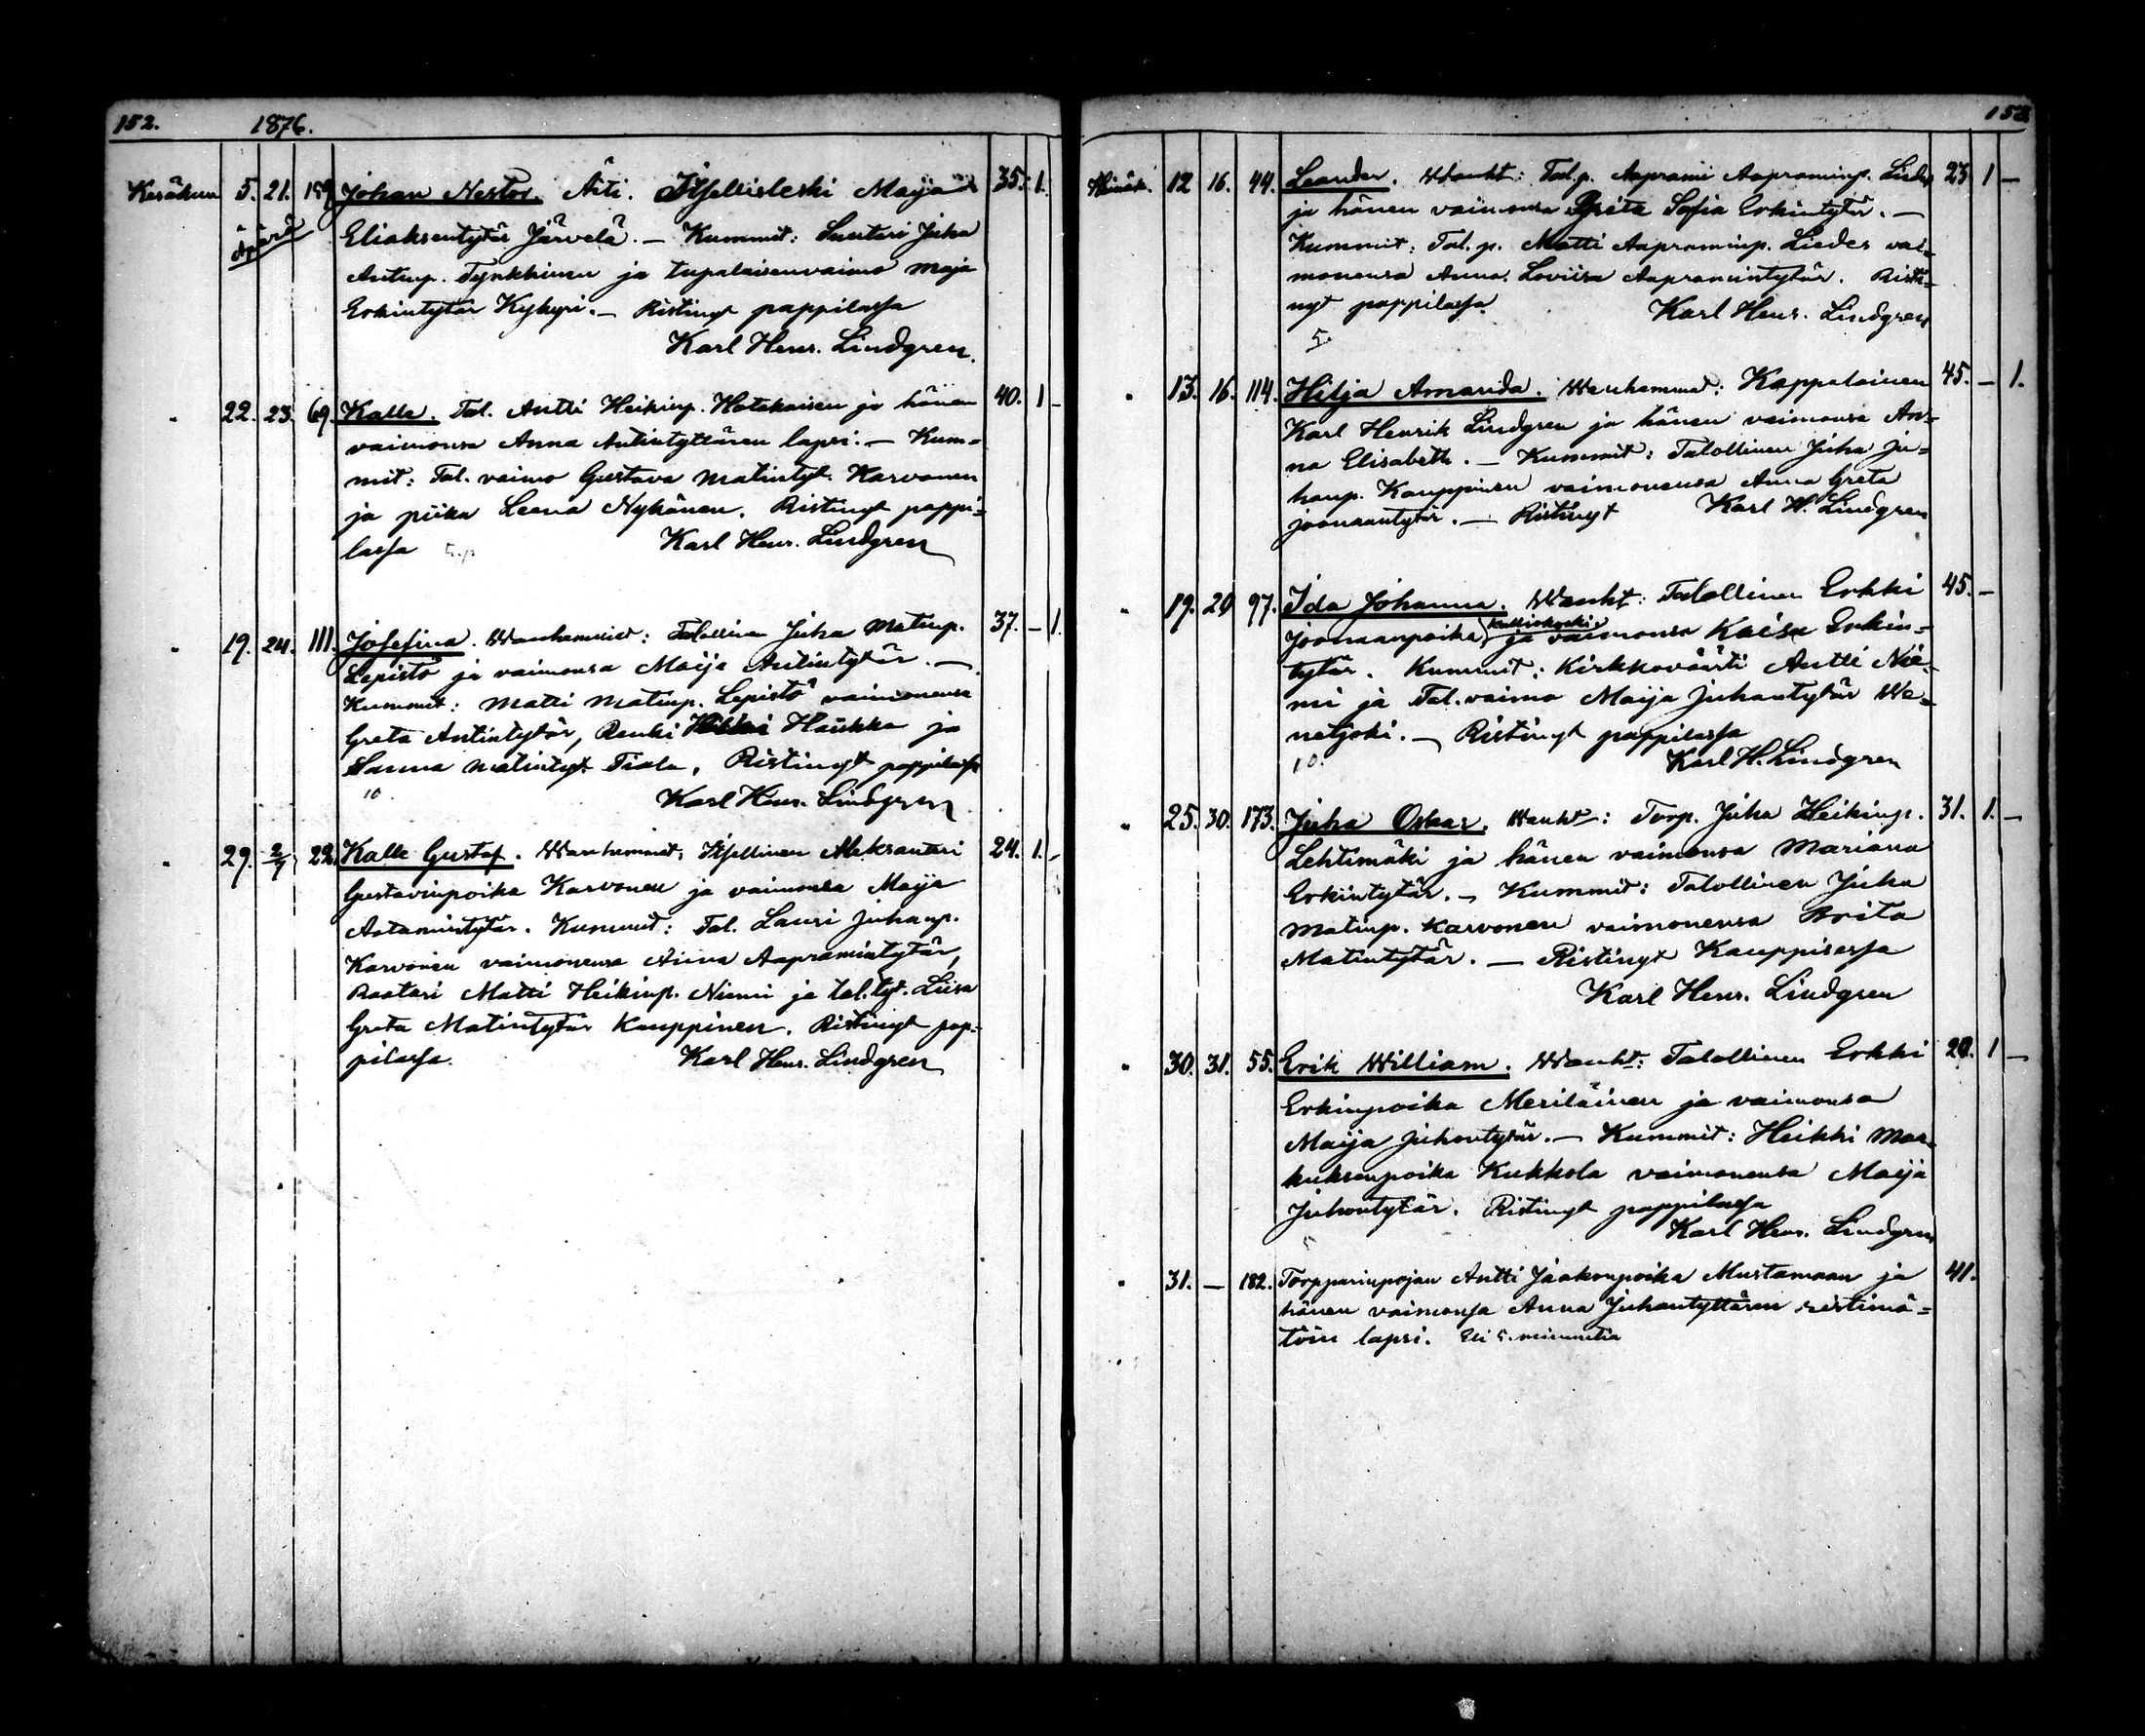 152. 1876.
Kesäkuu 5. 21. 159. Johan Nestor. Äiti. Itsellisleski Maija 35. 1.
äpärä Eliaksentytär Järvelä. — Kummit: Suutari Juha
Antinp. Tynkkinen ja tupalaisenvaimo Maja
Erkintytär Kykyri. — Ristinyt pappilassa
Karl Henr. Lindgren.
" 22. 23. 69. Kalle. Tal. Antti Heikinp. Hotakaisen ja hänen 40. 1 –
vaimonsa Anna Antintyttären lapsi. — Kum=
mit: Tal. vaimo Gustava Matintyt. Karvonen
ja piika Leena Nykänen. Ristinyt pappi=
lassa Karl Henr. Lindgren
" 19. 24. 111. Josefina. Wanhemmat: Talollinen Juha Matinp. 37. – 1.
Lepistö ja vaimonsa Maija Antintytär. —
Kummit: Matti Matinp. Lepistö vaimonensa
Greta Antintytär, Renki Heikki Haukka ja
Sanna Matintyt. Tiala, Ristinyt pappilassa
10 Karl Henr. Lindgren
" 29. 2/7 22. Kalle Gustaf. Wanhemmat: Itsellinen Aleksanteri 24. 1. –
Gustavinpoika Karvonen ja vaimonsa Maija
Aatamintytär. Kummit: Tal. Lauri Juhanp.
Karvonen vaimonensa Anna Aapramintytär,
Raatari Matti Heikinp. Niemi ja tal. tyt. Liisa
Greta Matintytär Kauppinen. Ristinyt pap=
pilassa. Karl Henr. Lindgren
153
Heinäk. 12 16. 44. Leander. Wanht: Tal.p. Aaprami Aapraminp. Lieder 23 1 –
ja hänen vaimonsa Greta Sofia Erkintytär. —
Kummit: Tal. p. Matti Aapraminp. Lieder vai=
monensa Anna Loviisa Aapramintytär. Risti=
nyt pappilassa. Karl Henr. Lindgren
5.
" 13. 16. 114. Hilja Amanda. Wanhemmat: Kappalainen 45. – 1.
Karl Henrik Lindgren ja hänen vaimonsa An=
na Elisabeth. — Kummit: Talollinen Juha Ju=
hanp. Kauppinen vaimonensa Anna Greta
Joonaantytär. — Ristinyt Karl H. Lindgren
" 19. 20 97. Ida Johanna. Wanht: Talollinen Erkki 45. –
Kalliokoski
Joonaanpoika ja vaimonsa Kaisa Erkin=
tytär. Kummit: Kirkkoväärti Antti Nie=
mi ja Tal. vaimo Maija Juhantytär We=
netjoki. — Ristinyt pappilassa
10. Karl H. Lindgren
" 25. 30. 173. Juha Oskar. Wanht: Torp. Juha Heikinp. 31. 1. –
Lehtimäki ja hänen vaimonsa Mariana
Erkintytär. — Kummit: Talollinen Juha
Matinp. Karvonen vaimonensa Brita
Matintytär. — Ristinyt Kauppisessa
Karl Henr. Lindgren
" 30. 31. 55. Erik William. Wanht: Talollinen Erkki 20. 1 –
Erkinpoika Meriläinen ja vaimonsa
Maija Juhontytär. — Kummit: Heikki Mar=
kuksenpoika Kukkola vaimonensa Maija
Juhontytär. Ristinyt pappilassa
Karl Henr. Lindgren
" 31. — 182. Torpparinpojan Antti Jaakonpoika Mustamaan ja 41.
hänen vaimonsa Anna Juhantyttären ristimä=
töin lapsi. Eli 5. minuutia